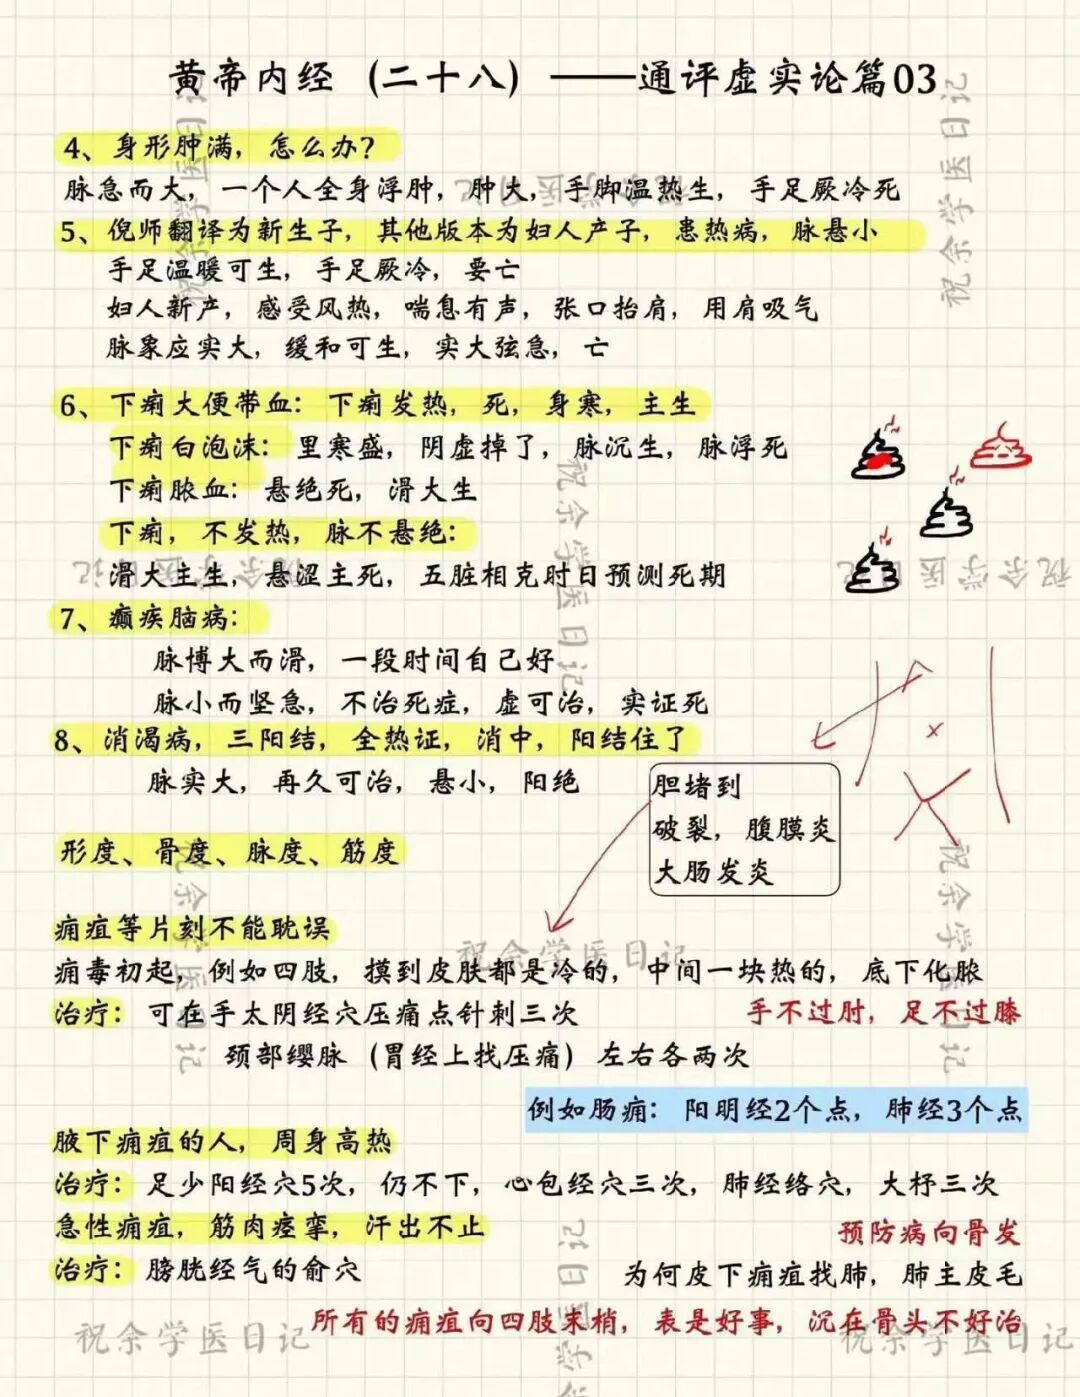 黄帝内经（二十八）——通评虚实论篇03
4、身形肿满，怎么办？
脉急而大，一个人全身浮肿，肿大，手脚温热生，手足厥冷死
5、倪师翻译为新生子，其他版本为妇人产子，患热病，脉悬小
手足温暖可生，手足厥冷，要亡
妇人新产，感受风热，喘息有声，张口抬肩，用肩吸气
脉象应实大，缓和可生，实大弦急，亡
6、下痢大便带血：下痢发热，死，身寒，主生
下痢白泡沫：里寒盛，阴虚掉了，脉沉生，脉浮死
下痢脓血：悬绝死，滑大生
下痢，不发热，脉不悬绝：
滑大主生，悬涩主死，五脏相克时日预测死期
7、癫疾脑病：
脉博大而滑，一段时间自己好
脉小而坚急，不治死症，虚可治，实证死
8、消渴病，三阳结，全热证，消中，阳结住了
脉实大，再久可治，悬小，阳绝
胆堵到
破裂，腹膜炎
大肠发炎
形度、骨度、脉度、筋度
痈疽等片刻不能耽误
痈毒初起，例如四肢，摸到皮肤都是冷的，中间一块热的，底下化脓
治疗：可在手太阴经穴压痛点针刺三次
手不过肘，足不过膝
颈部缨脉（胃经上找压痛）左右各两次
例如肠痈：阳明经2个点，肺经3个点
腋下痈疽的人，周身高热
治疗：足少阳经穴5次，仍不下，心包经穴三次，肺经络穴，大杼三次
急性痈疽，筋肉痉挛，汗出不止
预防病向骨发
治疗：膀胱经气的俞穴
为何皮下痈疽找肺，肺主皮毛
所有的痈疽向四肢末梢，表是好事，沉在骨头不好治
祝余学医日记
祝余学医日记
祝余学医日记
祝余学医日记
祝余学医日记
祝余学医日记
祝余学医日记
祝余学医日记
祝余学医日记
祝余学医日记
祝余学医日记
祝余学医日记
祝余学医日记